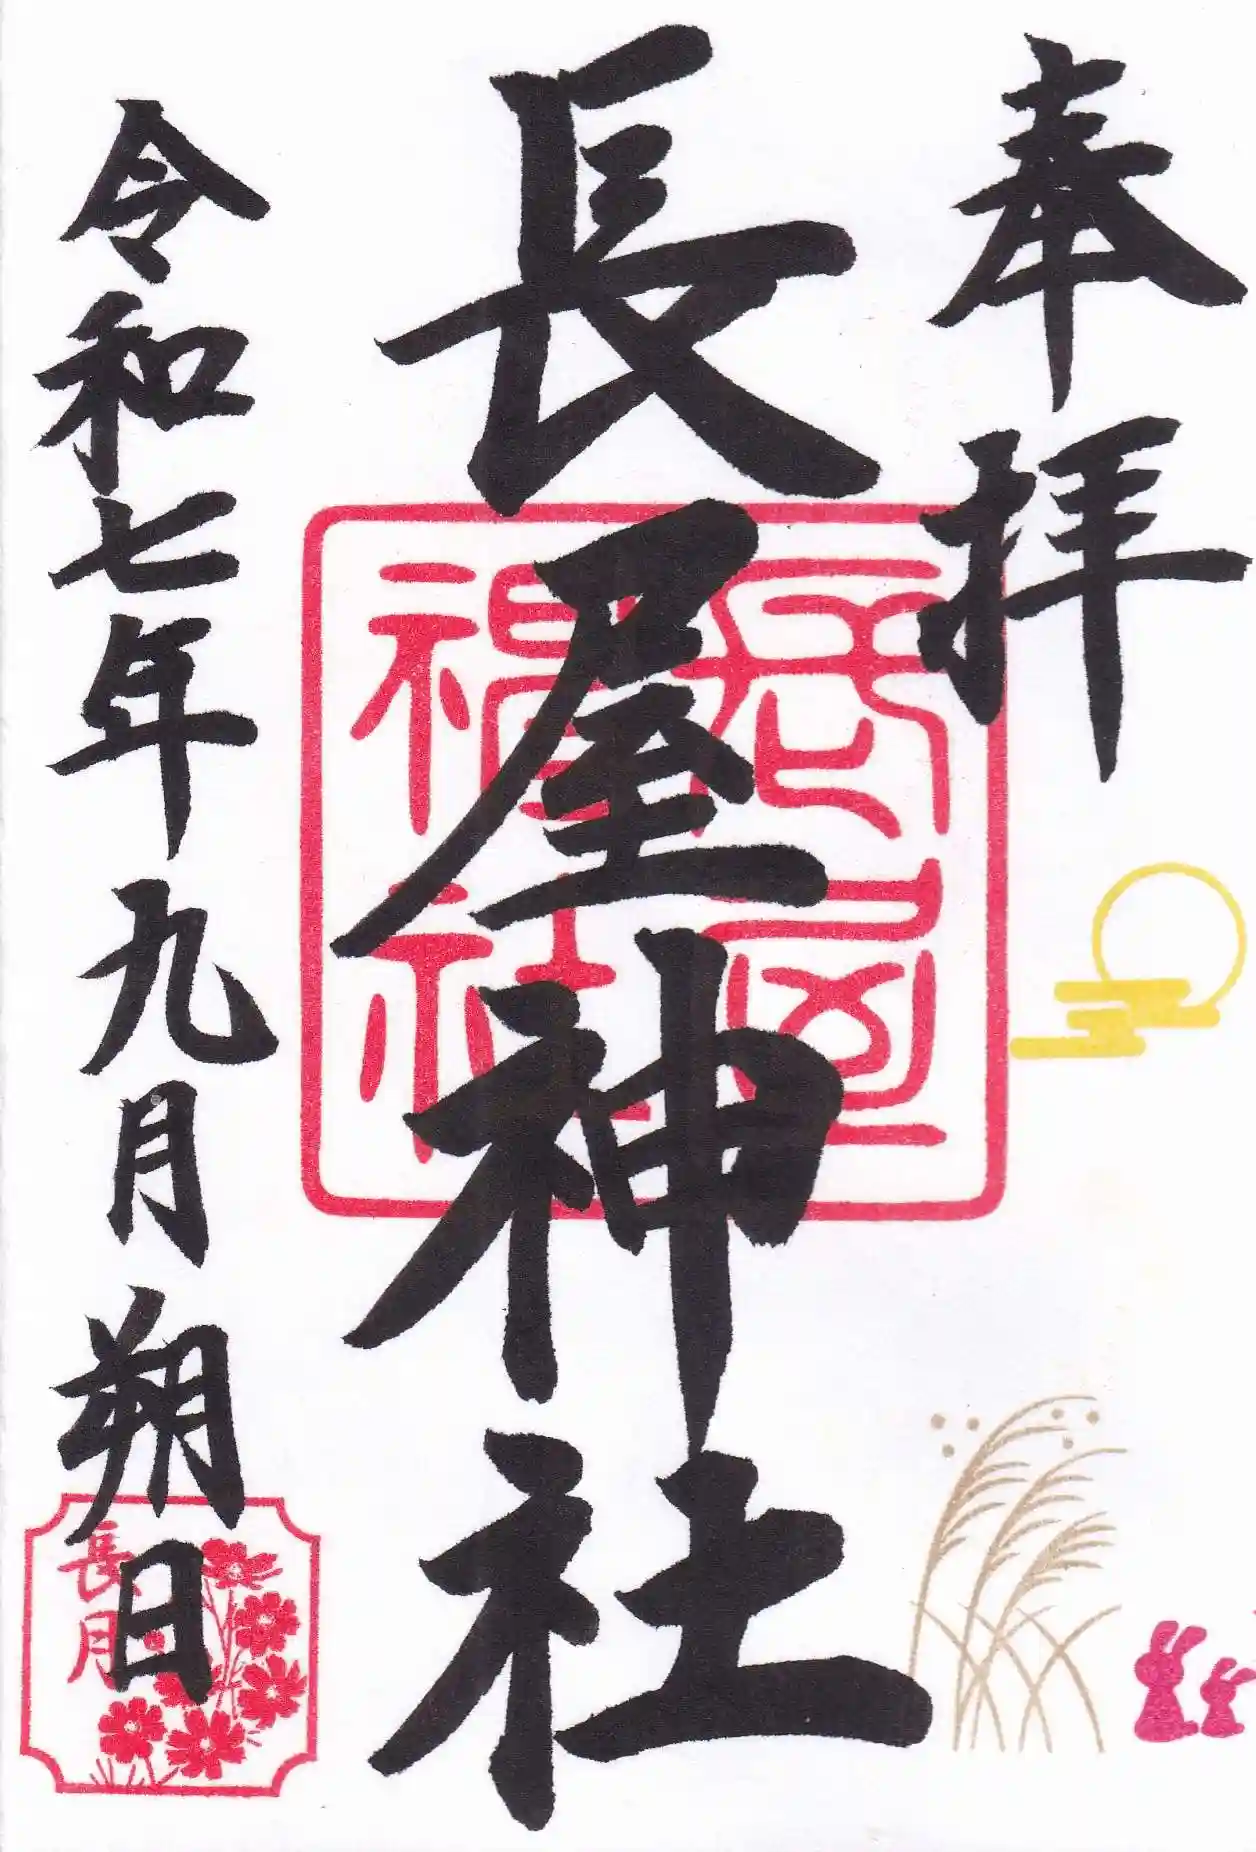 奉拝
長屋神社
長屋神社
令和七年九月朔日
長月